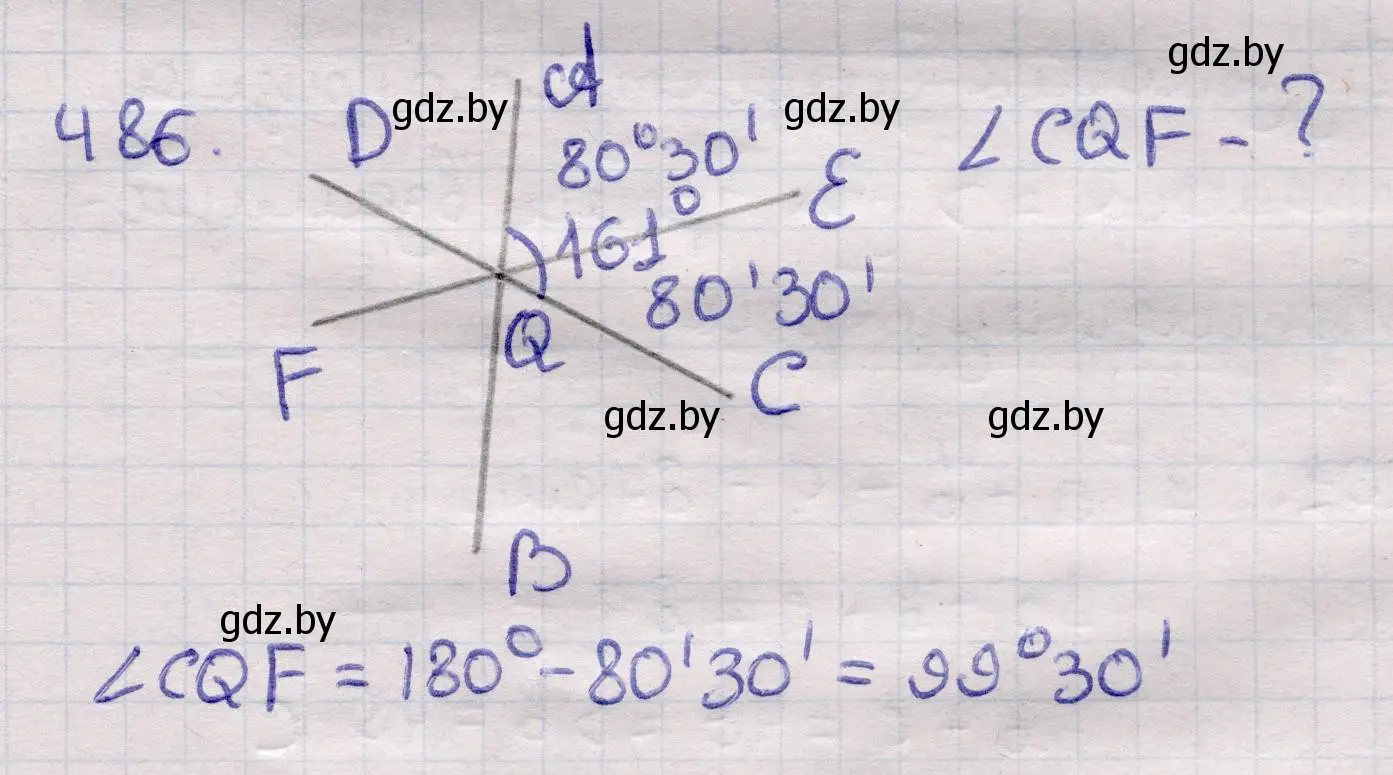 gdz.by
486. D gdz.by A gdz.by ∠CQF - ?
80°30'
161° E
80'30'
Q
F C
gdz.by gdz.by
B
gdz.by
∠CQF = 180° - 80'30' = 99°30'